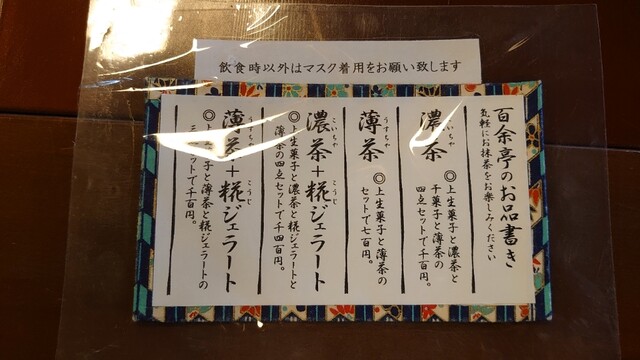 飲食時以外はマスク着用をお願い致します
百余亭のお品書き
気軽にお抹茶をお楽しみください
濃茶
こいちゃ
◎上生菓子と濃茶と
干菓子と薄茶の
四点セットで千百円。
薄茶
うすちゃ
◎上生菓子と薄茶の
セットで七百円。
濃茶+糀ジェラート
こいちゃ こうじ
◎上生菓子と濃茶と糀ジェラートと
薄茶の四点セットで千四百円。
薄茶+糀ジェラート
うすちゃ こうじ
◎上生菓子と薄茶と糀ジェラートの
三点セットで千百円。